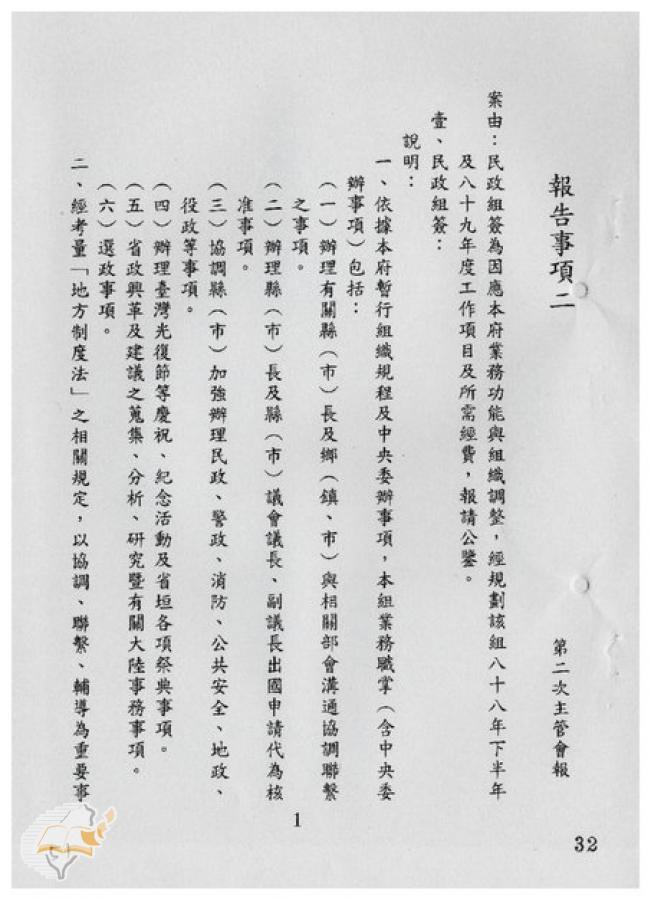 報告事項二
第二次主管會報
案由：民政組簽為因應本府業務功能與組織調整，經規劃該組八十八年下半年
及八十九年度工作項目及所需經費，報請公鑒。
壹、民政組簽：
說明：
一、依據本府暫行組織規程及中央委辦事項，本組業務職掌（含中央委
辦事項）包括：
（一）辦理有關縣（市）長及鄉（鎮、市）與相關部會溝通協調聯繫
之事項。
（二）辦理縣（市）長及縣（市）議會議長、副議長出國申請代為核
准事項。
（三）協調縣（市）加強辦理民政、警政、消防、公共安全、地政、
役政等事項。
（四）辦理臺灣光復節等慶祝、紀念活動及省垣各項祭典事項。
（五）省政興革及建議之蒐集、分析、研究暨有關大陸事務事項。
（六）選政事項。
二、經考量「地方制度法」之相關規定，以協調、聯繫、輔導為重要事
1
32